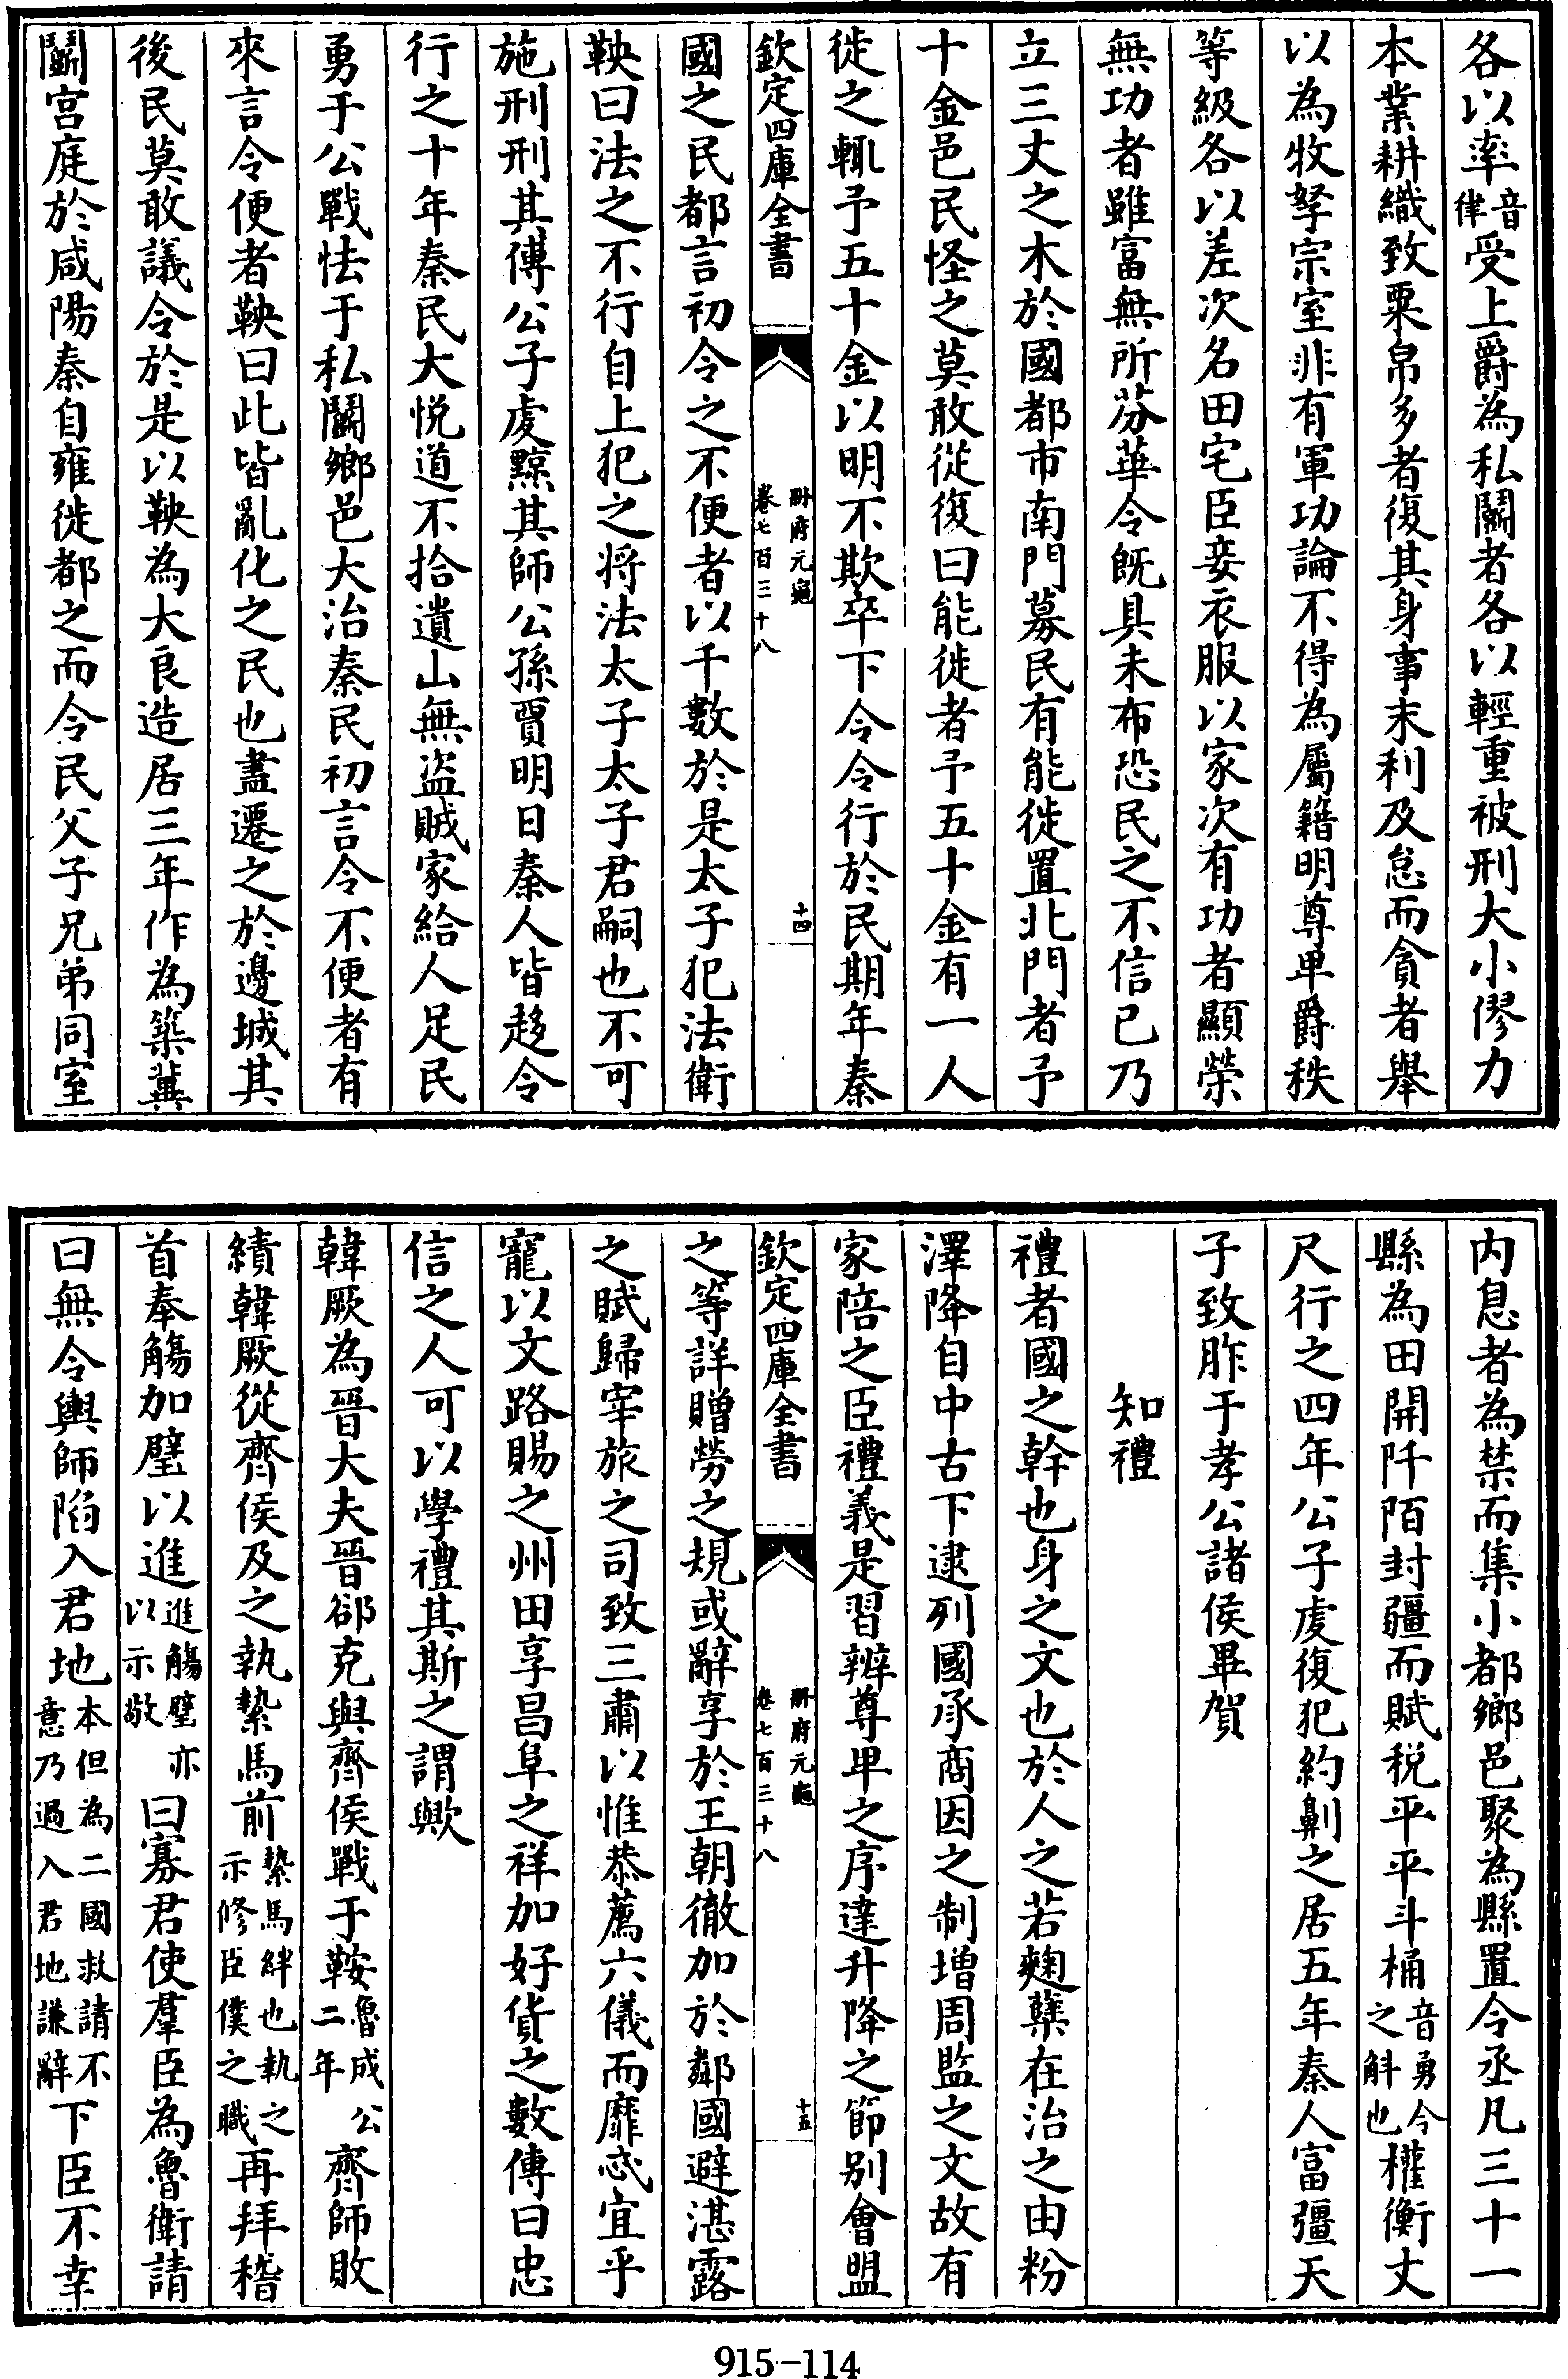 各以率音律受上爵為私鬭者各以輕重被刑大小僇力
本業耕織致粟帛多者復其身事末利及怠而貪者舉
以為收孥宗室非有軍功論不得為屬籍明尊卑爵秩
等級各以差次名田宅臣妾衣服以家次有功者顯榮
無功者雖富無所芬華令既具未布恐民之不信已乃
立三丈之木於國都市南門募民有能徙置北門者予
十金邑民怪之莫敢從復曰能徙者予五十金有一人
徙之輒予五十金以明不欺卒下令令行於民期年秦
欽定四庫全書
冊府元龜
卷七百三十八
十四
國之民都言初令之不便者以千數於是太子犯法衛
鞅曰法之不行自上犯之將法太子太子君嗣也不可
施刑刑其傅公子虔黥其師公孫賈明日秦人皆趍令
行之十年秦民大悅道不拾遺山無盜賊家給人足民
勇于公戰怯于私鬭鄉邑大治秦民初言令不便者有
來言令便者鞅曰此皆亂化之民也盡遷之於邊城其
後民莫敢議令於是以鞅為大良造居三年作為築冀
鬭宮庭於咸陽秦自雍徙都之而令民父子兄弟同室
內息者為禁而集小都鄉邑聚為縣置令丞凡三十一
縣為田開阡陌封疆而賦稅平平斗桶音勇今之斛也權衡丈
尺行之四年公子虔復犯約劓之居五年秦人富彊天
子致胙于孝公諸侯畢賀
知禮
禮者國之幹也身之文也於人之若麴糵在治之由粉
澤降自中古下逮列國承商因之制增周監之文故有
家陪之臣禮義是習辨尊卑之序達升降之節別會盟
欽定四庫全書
冊府元龜
卷七百三十八
十五
之等詳贈勞之規或辭享於王朝徹加於鄰國避湛露
之賦歸宰旅之司致三肅以惟恭薦六儀而靡忒宜乎
寵以文路賜之州田享昌阜之祥加好貨之數傳曰忠
信之人可以學禮其斯之謂歟
韓厥為晉大夫晉郤克與齊侯戰于鞍魯成公二年齊師敗
績韓厥從齊侯及之執縶馬前縶馬絆也執之示修臣僕之職再拜稽
首奉觴加璧以進進觴璧亦以示敬曰寡君使羣臣為魯衛請
曰無令輿師陷入君地本但為二國救請不意乃過入君地謙辭下臣不幸
915-114